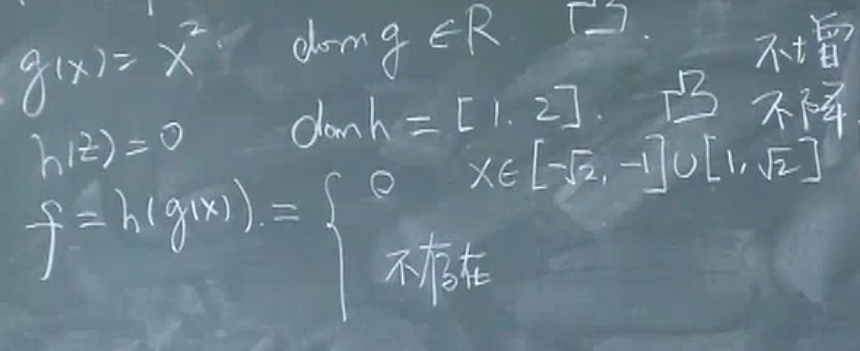 g(x) = x². dom g ∈ R. 凸. 不增
h(z) = 0 dom h = [1, 2]. 凸 不降
f = h(g(x)). = { 0 x ∈ [-√2, -1] ∪ [1, √2]
不存在